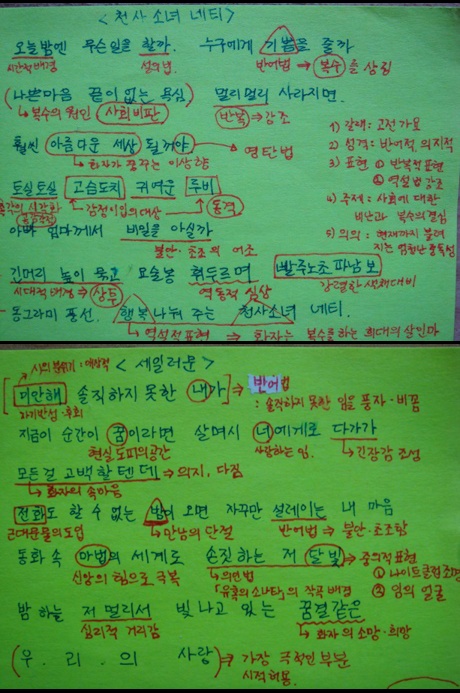 < 천사소녀 네티 >
오늘밤엔 무슨일을 할까. 누구에게 기쁨을 줄까
시간적배경 설의법 반어법 → 복수를 상징
(나쁜마음 꿈이없는 욕심) 멀리멀리 사라지면.
→ 복수의 원인 사회비판 반복 ⇒ 강조
훨씬 아름다운 세상 될꺼야 → 영탄법
→ 화자가 꿈꾸는 이상향
1) 갈래 : 고전가요
2) 성격 : 반어적, 의지적
3) 표현 ① 반복적표현
② 역설법 강조
4) 주제 : 사회에 대한
비난과 복수의 결심
5) 의의 : 현재까지 불려
지는 엄청난 중독성
토실토실 고슴도치 귀여운 루비
촉각의 시각화 감정이입의대상 → 동격
아빠 엄마께서 비밀을 아실까
불안·초조의 어조
긴머리 높이 묶고 요술봉 휘두르며 빨주노초파남보
시대적배경 → 상투 역동적 심상 강렬한 색채대비
동그라미 풍선, 행복 나눠 주는 천사소녀 네티.
→ 역설적표현 → 화자는 복수를하는 희대의 살인마
< 세일러문 >
시의 분위기 : 애상적
[미안해 솔직하지 못한 내가] ⇒ 반어법
자기반성·후회 : 솔직하지 못한 임을 풍자·비꼼
지금이 순간이 꿈이라면 살며시 너에게로 다가가
현실도피의공간 사랑하는 임. → 긴장감 조성
모든걸 고백할 텐데 ⇒ 의지, 다짐
→ 화자의 속마음
전화도 할 수 없는 밤이 오면 자꾸만 설레이는 내 마음
근대문물의도입 → 만남의 단절 반어법 → 불안·초조함
동화 속 마법의 세계로 손짓하는 저 달빛 → 중의적표현
신앙의 힘으로 극복 → 의인법 ① 나이트클럽 조명
「유혹의 소나타」의 작곡 배경 ② 임의 얼굴
밤 하늘 저 멀리서 빛나고 있는 꿈결같은
심리적 거리감 → 화자의 소망·희망
(우. 리. 의 사랑) ⇒ 가장 극적인 부분
시적허용.